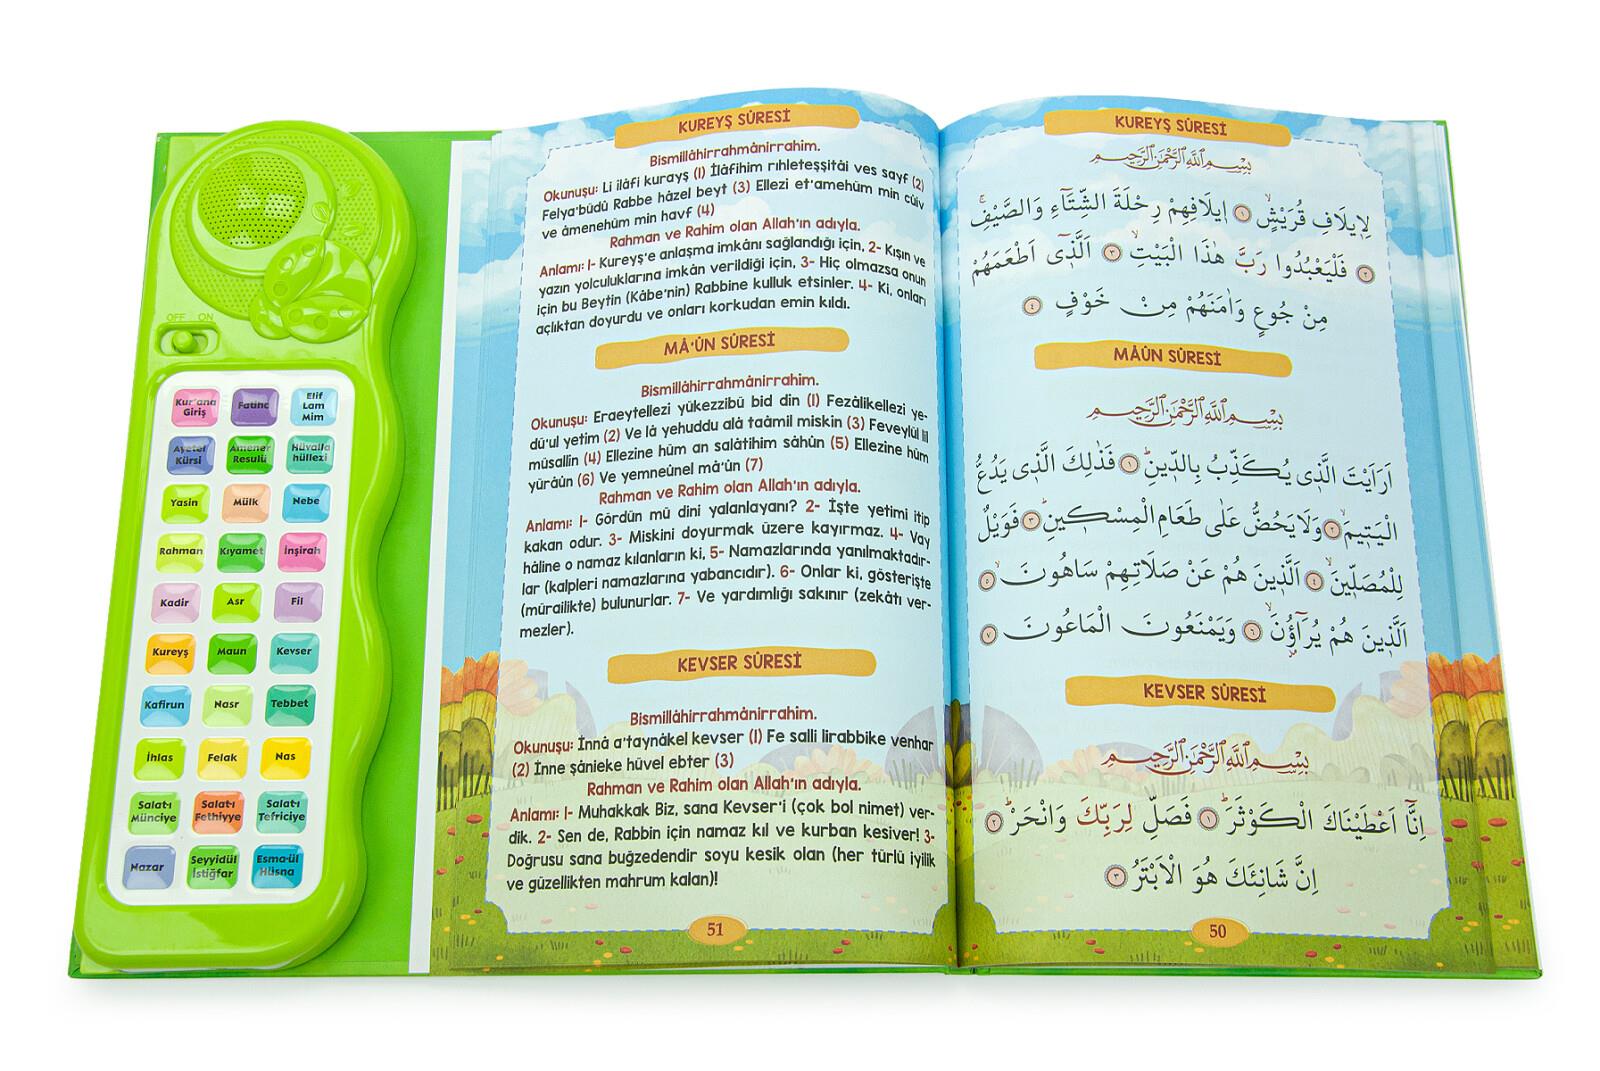 OFF ON
Kur'ana
Giriş
Fatiha
Elif
Lam
Mim
Ayetel
Kürsi
Amener
Resulü
Hüvalla
hüllezi
Yasin
Mülk
Nebe
Rahman
Kıyamet
İnşirah
Kadir
Asr
Fil
Kureyş
Maun
Kevser
Kafirun
Nasr
Tebbet
İhlas
Felak
Nas
Salat-ı
Münciye
Salat-ı
Fethiyye
Salat-ı
Tefriciye
Nazar
Seyyidül
İstiğfar
Esma-ül
Hüsna
KUREYŞ SÛRESİ
Bismillâhirrahmânirrahim.
Okunuşu: Li ilâfi kurayş (1) İlâfihim rıhleteşşitâi ves sayf (2)
Felya'büdü Rabbe hâzel beyt (3) Ellezi et'amehüm min cûiv
ve âmenehüm min havf (4)
Rahman ve Rahim olan Allah'ın adıyla.
Anlamı: 1- Kureyş'e anlaşma imkânı sağlandığı için, 2- Kışın ve
yazın yolculuklarına imkân verildiği için, 3- Hiç olmazsa onun
için bu Beytin (Kâbe'nin) Rabbine kulluk etsinler. 4- Ki, onları
açlıktan doyurdu ve onları korkudan emin kıldı.
MÂ'ÛN SÛRESİ
Bismillâhirrahmânirrahim.
Okunuşu: Eraeytellezi yükezzibü bid din (1) Fezâlikellezi ye-
dü'ul yetim (2) Ve lâ yehuddu alâ taâmil miskin (3) Feveylül lil
müsallin (4) Ellezine hüm an salâtihim sâhûn (5) Ellezine hüm
yürâûn (6) Ve yemneûnel mâ'ûn (7)
Rahman ve Rahim olan Allah'ın adıyla.
Anlamı: 1- Gördün mü dini yalanlayanı? 2- İşte yetimi itip
kakan odur. 3- Miskini doyurmak üzere kayırmaz. 4- Vay
hâline o namaz kılanların ki, 5- Namazlarında yanılmaktadır-
lar (kalpleri namazlarına yabancıdır). 6- Onlar ki, gösterişte
(mürailikte) bulunurlar. 7- Ve yardımlığı sakınır (zekâtı ver-
mezler).
KEVSER SÛRESİ
Bismillâhirrahmânirrahim.
Okunuşu: İnnâ a'taynâkel kevser (1) Fe salli lirabbike venhar
(2) İnne şânieke hüvel ebter (3)
Rahman ve Rahim olan Allah'ın adıyla.
Anlamı: 1- Muhakkak Biz, sana Kevser'i (çok bol nimet) ver-
dik. 2- Sen de, Rabbin için namaz kıl ve kurban kesiver! 3-
Doğrusu sana buğzedendir soyu kesik olan (her türlü iyilik
ve güzellikten mahrum kalan)!
51
KUREYŞ SÛRESİ
بِسْمِ اللّٰهِ الرَّحْمٰنِ الرَّحِيمِ
لِإِيلَافِ قُرَيْشٍۙ ١ اِيلَافِهِمْ رِحْلَةَ الشِّتَٓاءِ وَالصَّيْفِۚ
٢ فَلْيَعْبُدُوا رَبَّ هٰذَا الْبَيْتِۙ ٣ اَلَّذٖٓى اَطْعَمَهُمْ
مِنْ جُوعٍ وَاٰمَنَهُمْ مِنْ خَوْفٍ ٤
MÂÛN SÛRESİ
بِسْمِ اللّٰهِ الرَّحْمٰنِ الرَّحِيمِ
اَرَاَيْتَ الَّذٖى يُكَذِّبُ بِالدّٖينِؕ ١ فَذٰلِكَ الَّذٖى يَدُعُّ
الْيَتٖيمَۙ ٢ وَلَا يَحُضُّ عَلٰى طَعَامِ الْمِسْكٖينِؕ ٣ فَوَيْلٌ
لِلْمُصَلّٖينَۙ ٤ اَلَّذٖينَ هُمْ عَنْ صَلَاتِهِمْ سَاهُونَۙ ٥
اَلَّذٖينَ هُمْ يُرَٓاؤُ۫نَۙ ٦ وَيَمْنَعُونَ الْمَاعُونَ ٧
KEVSER SÛRESİ
بِسْمِ اللّٰهِ الرَّحْمٰنِ الرَّحِيمِ
اِنَّٓا اَعْطَيْنَاكَ الْكَوْثَرَؕ ١ فَصَلِّ لِرَبِّكَ وَانْحَرْؕ ٢
اِنَّ شَانِئَكَ هُوَ الْاَبْتَرُ ٣
50